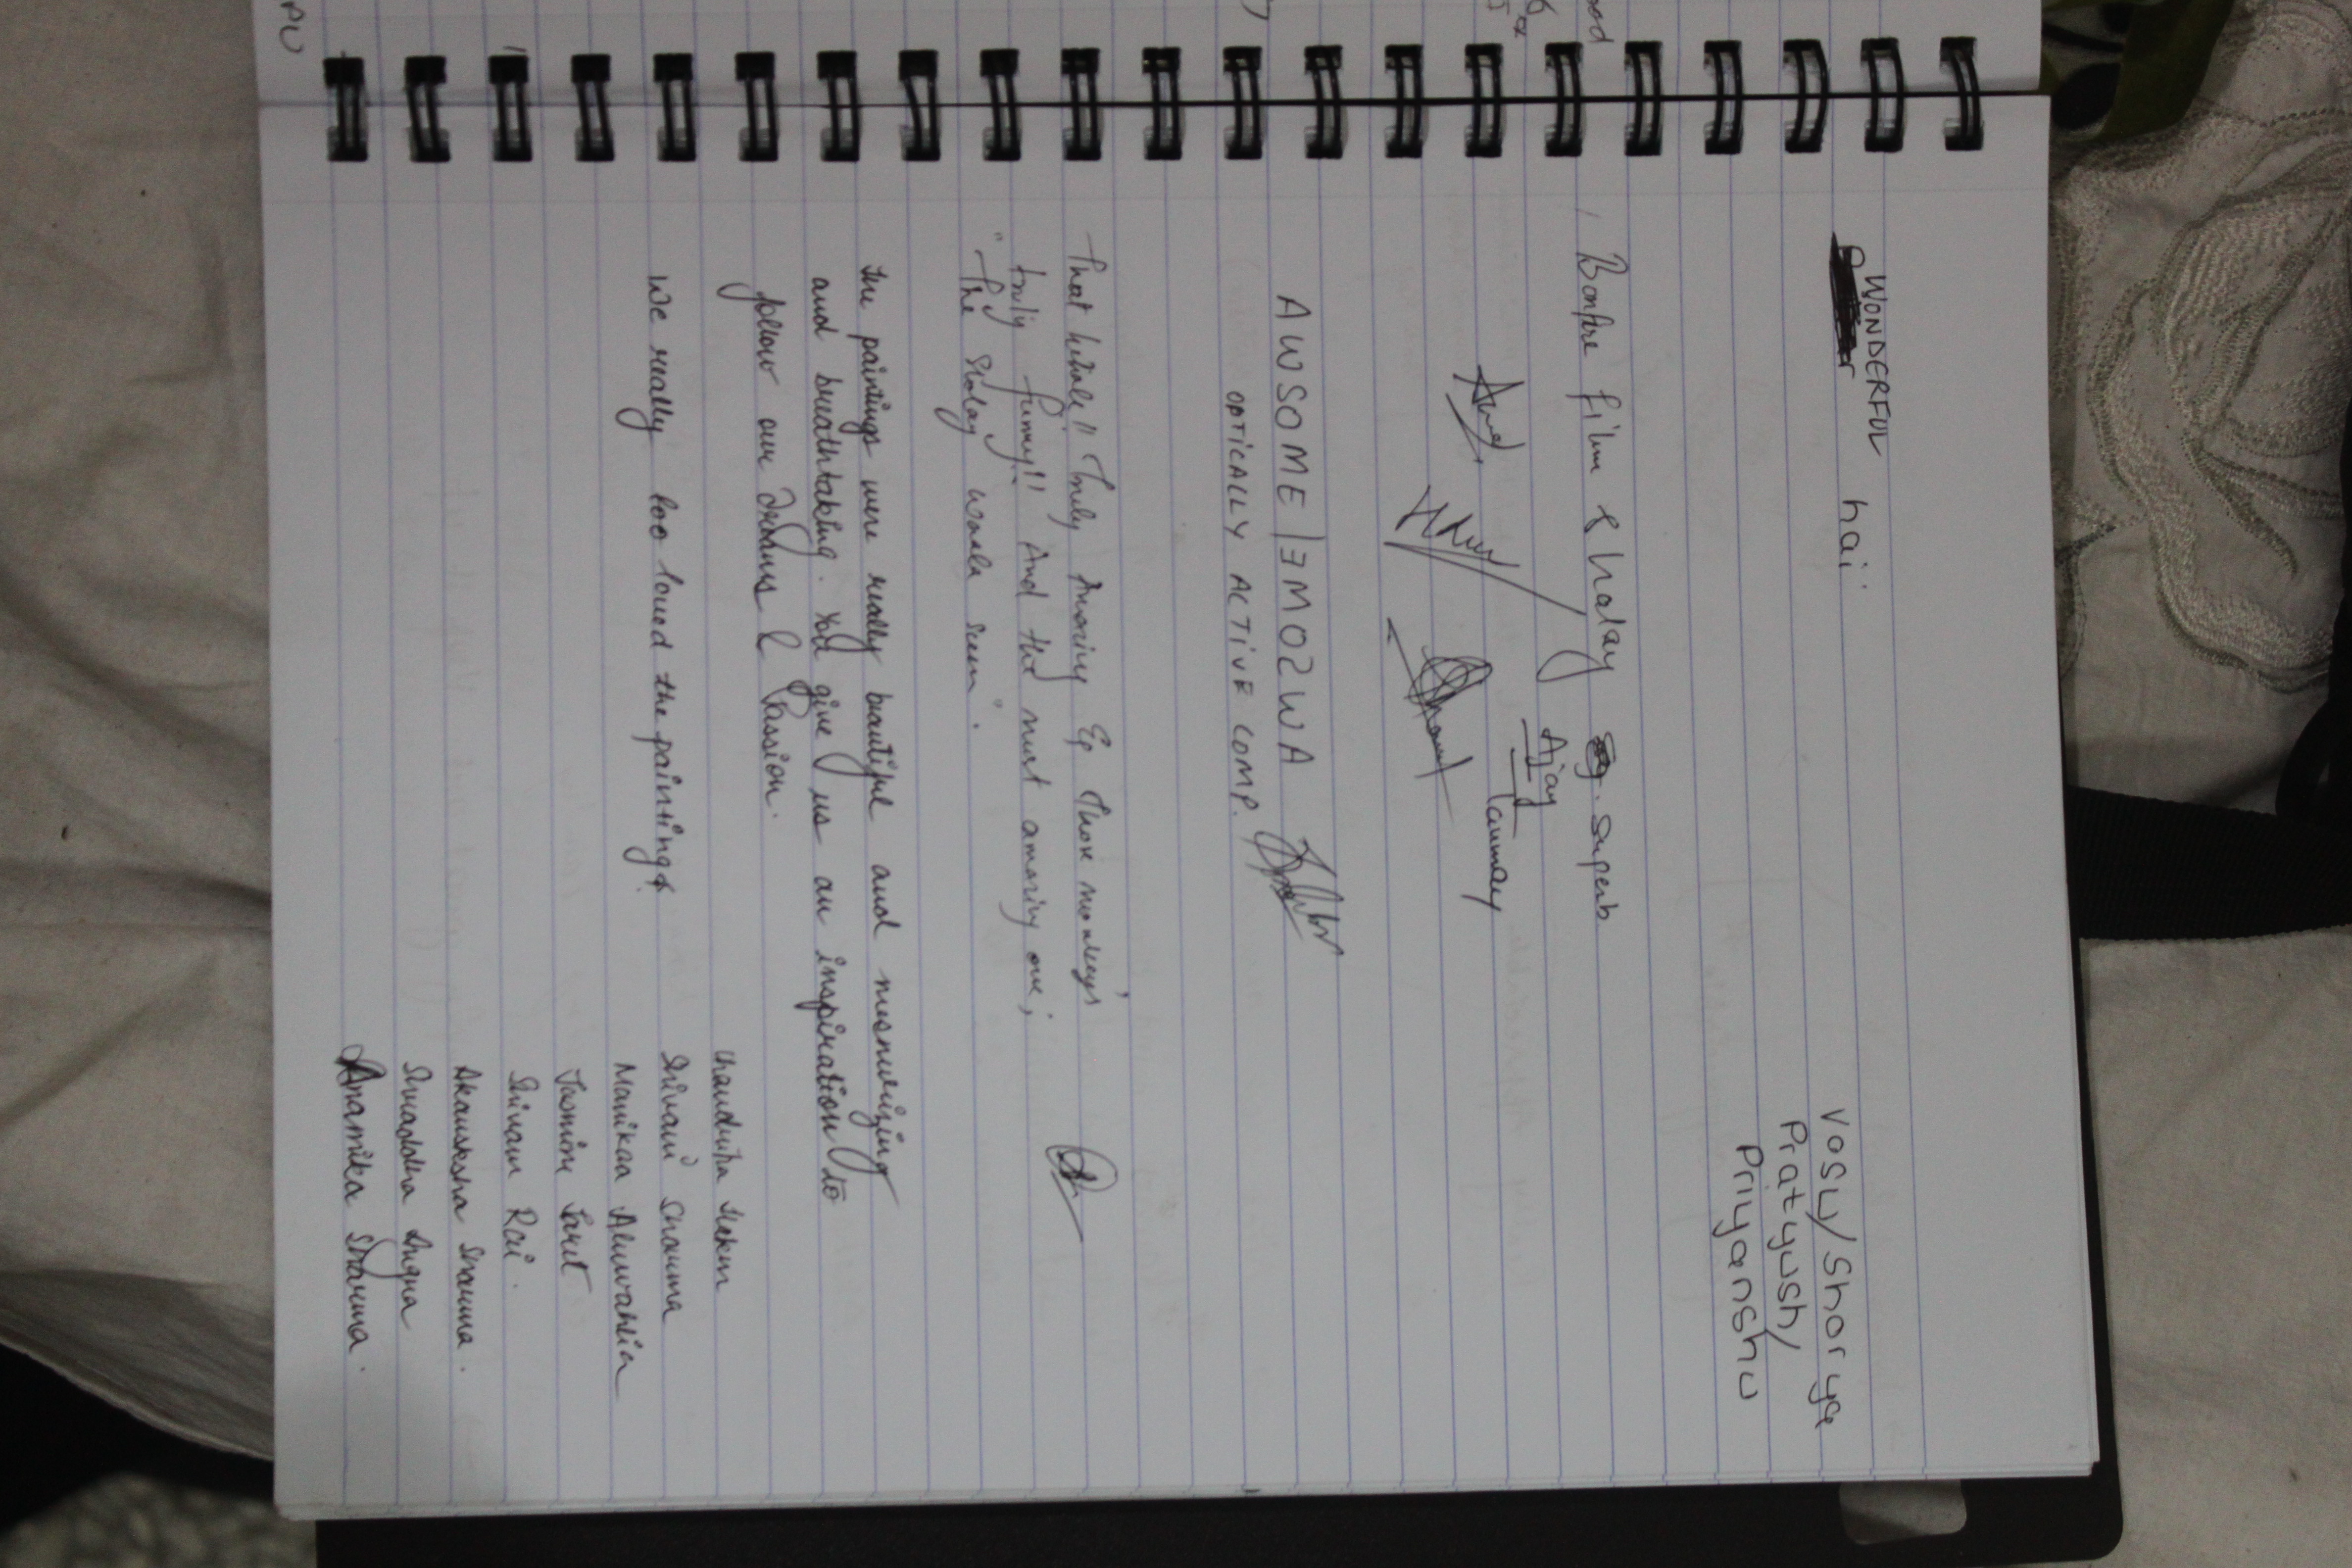 WONDERFUL
hai
Vasu/Shorya
Pratyush/
Priyanshu
Bonfire film Sholay superb
Ajay
Tanmay
AWSOME | EMOSWA
OPTICALLY ACTIVE COMP.
That whale!! Truly Amazing Eg Those monkeys
truly funny!! And the most amazing one;
"The Sholay waala seen".
The paintings were really beautiful and mesmerizing
and breathtaking. You give us an inspiration to
follow our Dreams & Passion.
We really loo loved the paintings
Shivani Sharma
Manikaa Aluwahlia
Jasmine
Shivam Rai
Akansksha Sharma.
Shraddha
Anamika Sharma.
ood
PU